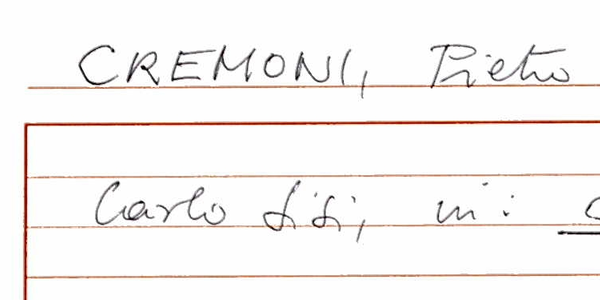 CREMONI, Pietro
Carlo Sisi, in: